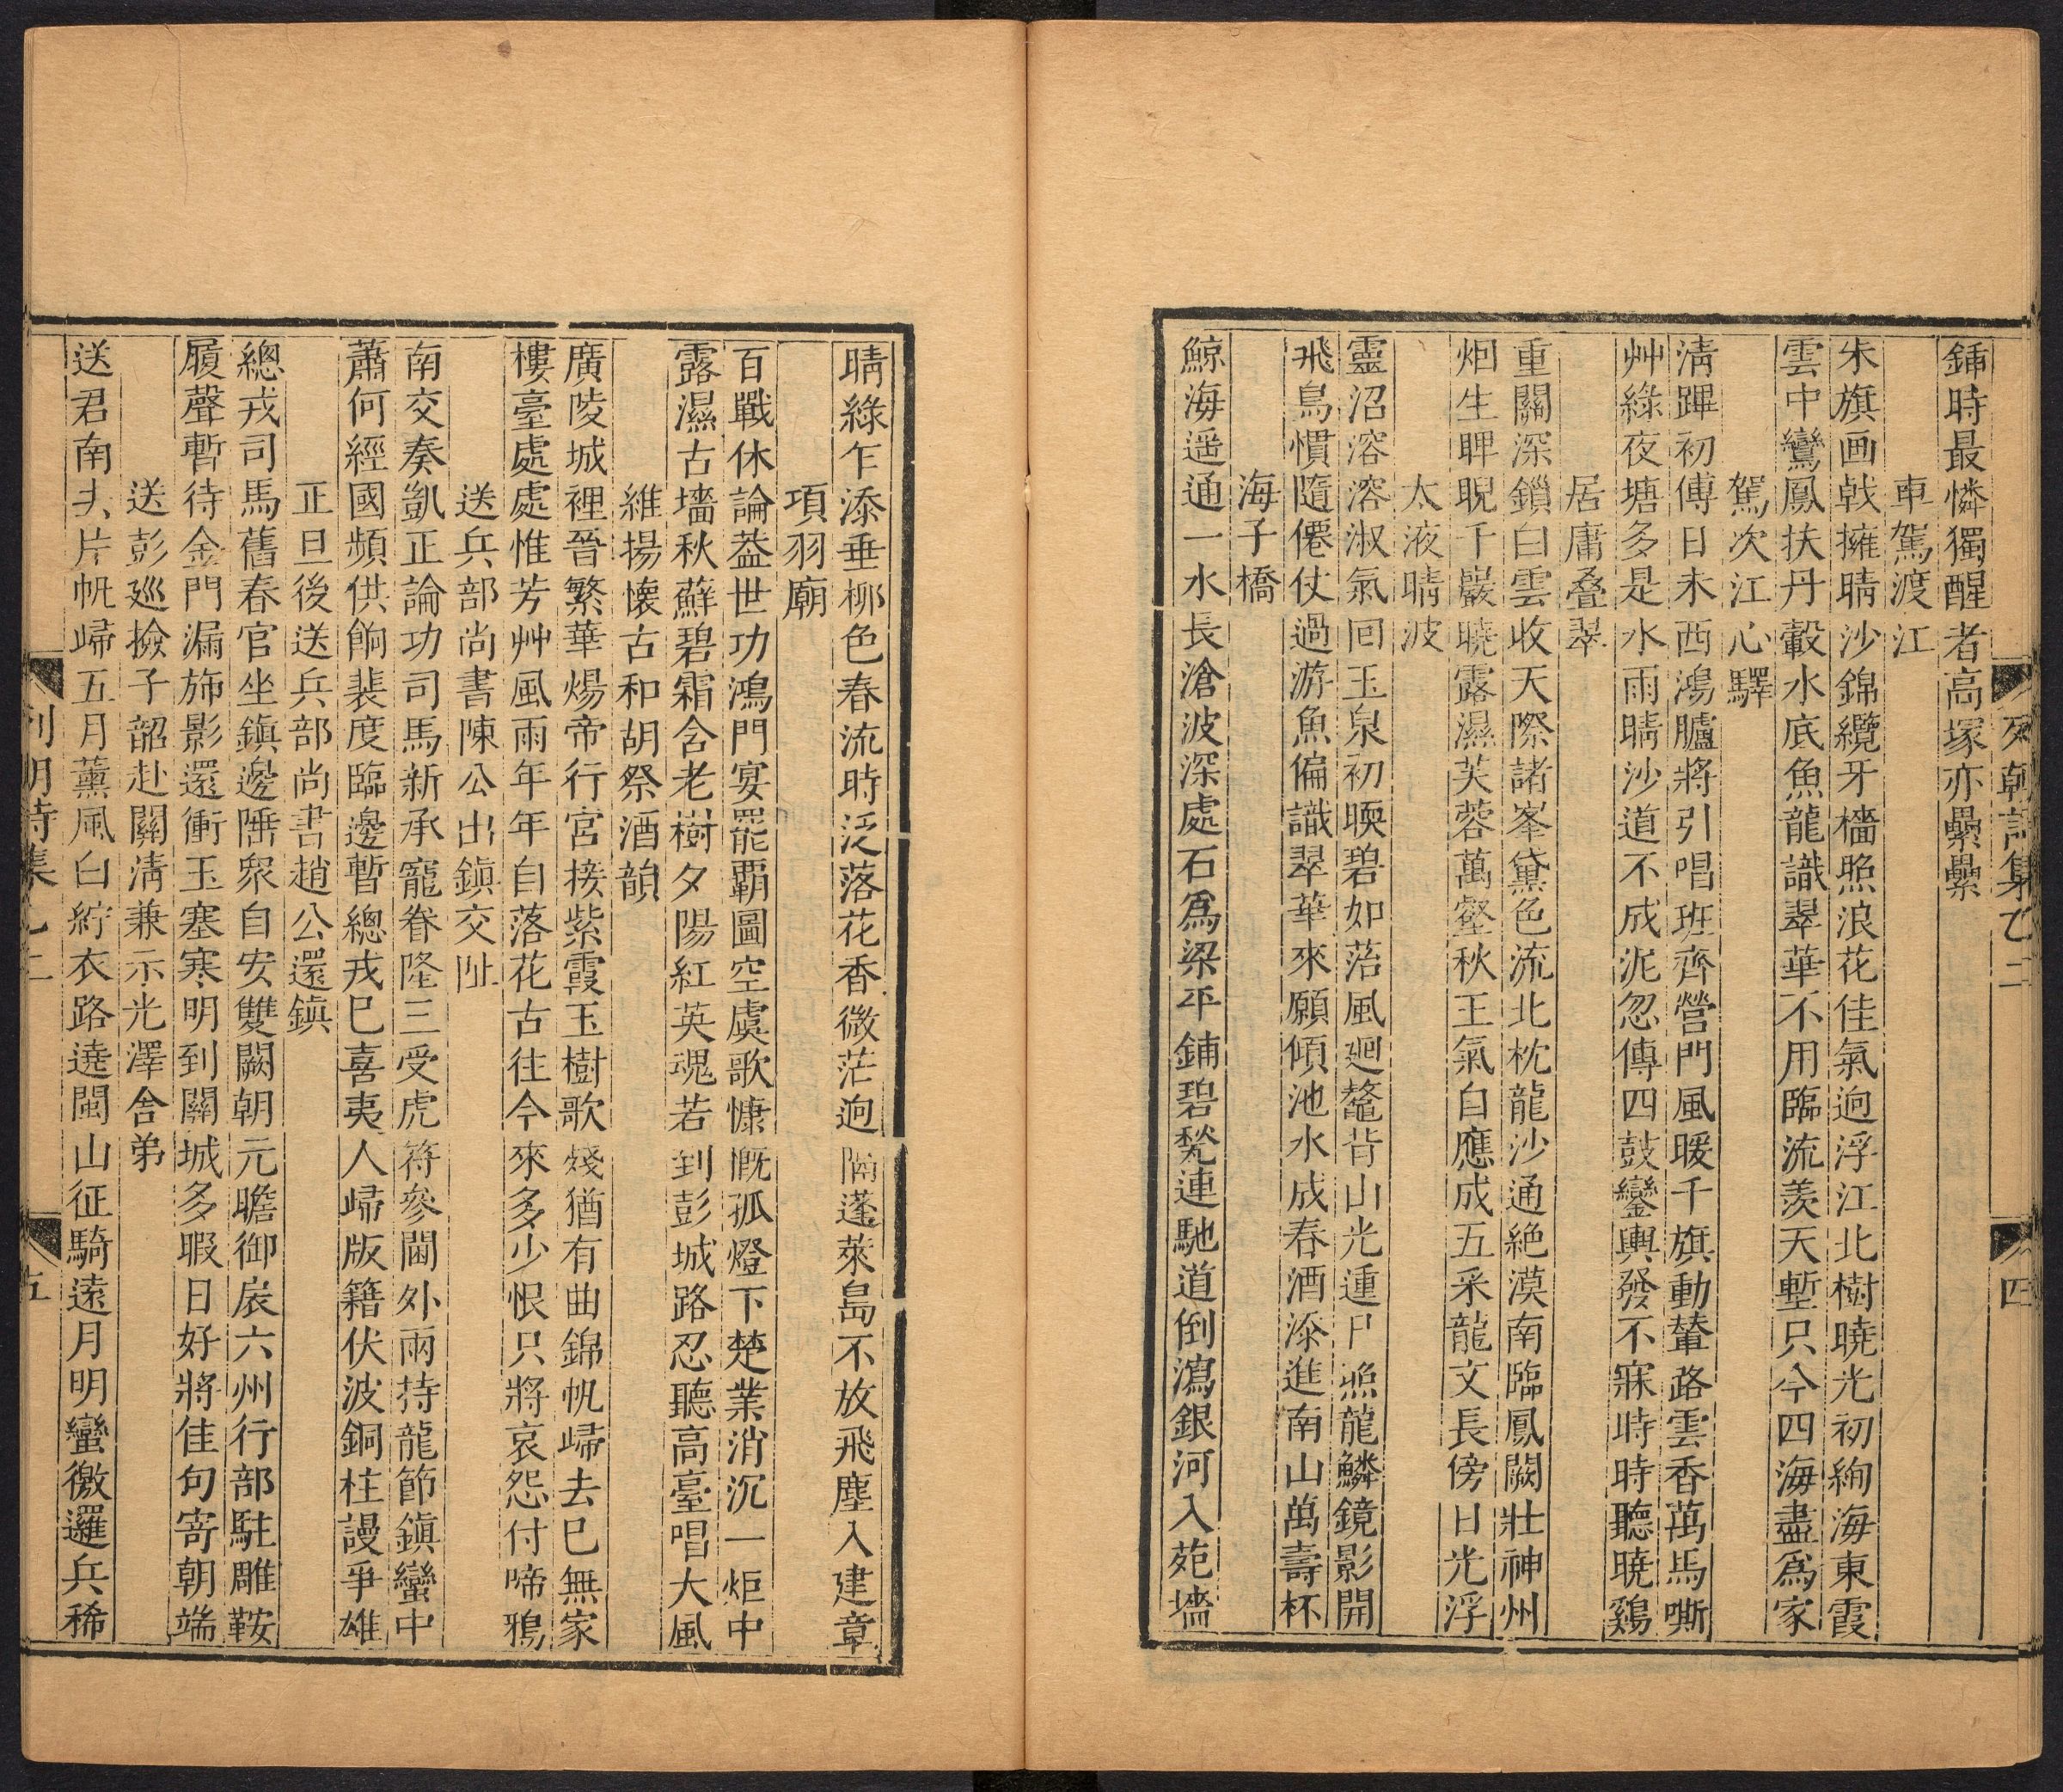 列朝詩集乙二
四
鍤時最憐獨醒者高塚亦纍纍
車駕渡江
朱旗画戟擁晴沙錦纜牙檣照浪花佳氣逈浮江北樹曉光初絢海東霞
雲中鸞鳳扶丹轂水底魚龍識翠華不用臨流羡天塹只今四海盡爲家
駕次江心驛
清蹕初傳日未西鴻臚將引唱班齊營門風暖千旗動輦路雲香萬馬嘶
艸綠夜塘多是水雨晴沙道不成泥忽傳四鼓鑾輿發不寐時時聽曉鷄
居庸叠翠
重關深鎖白雲收天際諸峯黛色流北枕龍沙通絶漠南臨鳳闕壯神州
烟生睥睨千巖曉露濕芙蓉萬壑秋王氣自應成五采龍文長傍日光浮
太液晴波
靈沼溶溶淑氣回玉泉初暎碧如苔風廻鼇背山光連日照龍鱗鏡影開
飛鳥慣隨僊仗過游魚偏識翠華來願傾池水成春酒添進南山萬壽杯
海子橋
鯨海遥通一水長滄波深處石爲梁平鋪碧甃連馳道倒瀉銀河入苑墻
晴綠乍添垂栁色春流時泛落花香微茫逈隔蓬萊島不放飛塵入建章
項羽廟
百戰休論葢世功鴻門宴罷覇圖空虞歌慷慨孤燈下楚業消沉一炬中
露濕古墻秋蘚碧霜含老樹夕陽紅英魂若到彭城路忍聽高臺唱大風
維揚懐古和胡祭酒韻
廣陵城裡晉繁華煬帝行宮接紫霞玉樹歌殘猶有曲錦帆歸去已無家
樓臺處處惟芳艸風雨年年自落花古往今來多少恨只將哀怨付啼鴉
送兵部尚書陳公出鎮交阯
南交奏凱正論功司馬新承寵眷隆三受虎符參閫外兩持龍節鎮蠻中
蕭何經國頻供餉裴度臨邊暫總戎已喜夷人歸版籍伏波銅柱謾爭雄
正旦後送兵部尚書趙公還鎮
總戎司馬舊春官坐鎮邊陲衆自安雙闕朝元瞻御扆六州行部駐雕鞍
履聲暫待金門漏斾影還衝玉塞寒明到關城多暇日好將佳句寄朝端
送彭廵撿子韶赴闕清兼示光澤舍弟
送君南去片帆歸五月薰風白紵衣路遶閩山征騎遠月明蠻徼邏兵稀
列朝詩集乙二
五